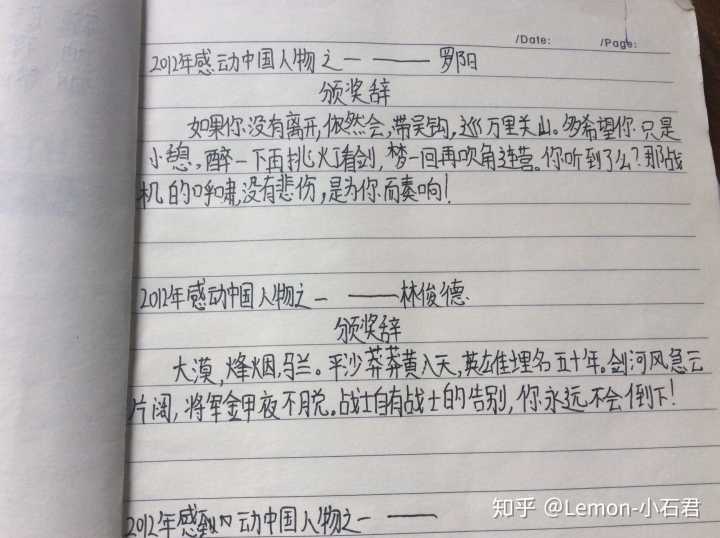 /Date: /Page:
2012年感动中国人物之一 —— 罗阳
颁奖辞
如果你没有离开,依然会,带吴钩,巡万里关山。多希望你只是
小憩,醉一下再挑灯看剑,梦一回再吹角连营。你听到了么?那战
机的呼啸,没有悲伤,是为你而奏响!
2012年感动中国人物之一 ——林俊德
颁奖辞
大漠,烽烟,马兰。平沙莽莽黄入天,英雄埋名五十年。剑河风急云
片阔,将军金甲夜不脱。战士自有战士的告别,你永远不会倒下!
2012年感动中国人物之一 ——
知乎 @Lemon-小石君